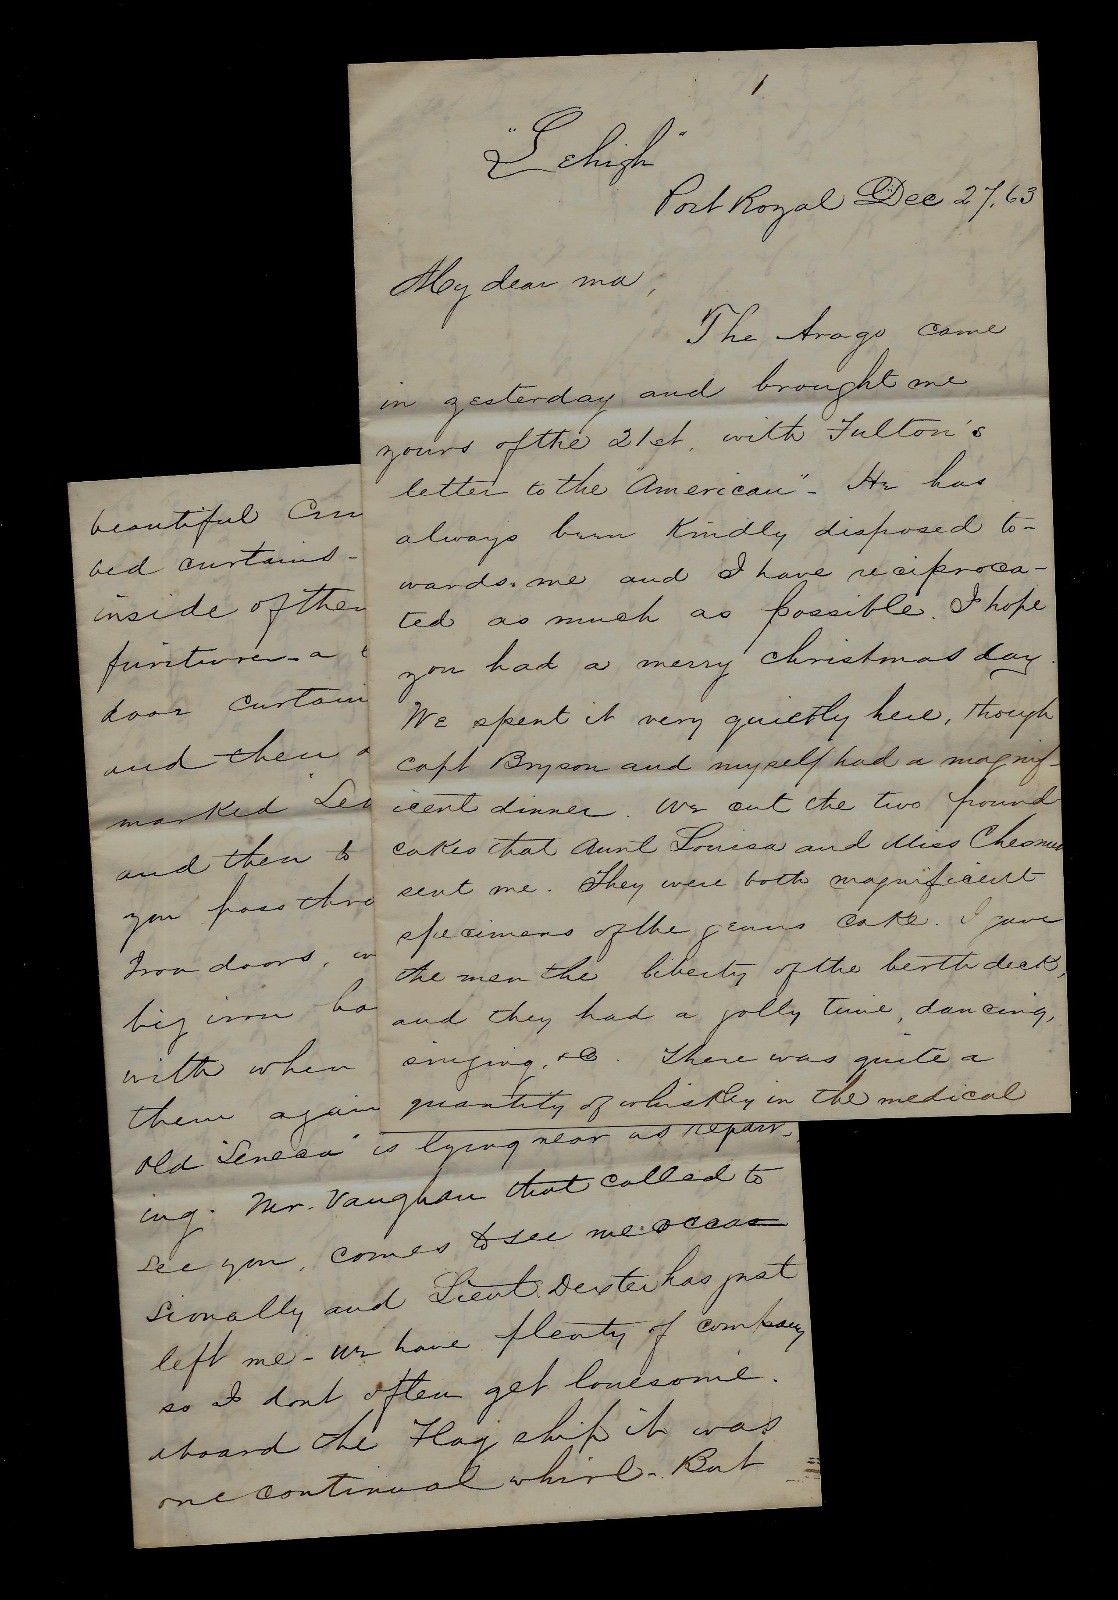 1
"Lehigh"
Port Royal Dec 27, 63
My dear ma,
The Arago came
in yesterday and brought me
yours of the 21st. with Fulton's
letter to the "American" - He has
always been kindly disposed to-
wards me and I have reciproca-
ted as much as possible. I hope
you had a merry christmas day.
We spent it very quietly here, though
capt Bryson and myself had a magnif-
icent dinner. We cut the two pound
cakes that Aunt Louisa and Miss Chesnu
sent me. They were both magnificent
specimens of the genus cake. I gave
the men the liberty of the berth deck,
and they had a jolly time, dancing,
singing, &c. There was quite a
quantity of whiskey in the medical
beautiful
bed curtains -
inside of the
furniture - a
door curtain
and then
marked
and then to
you pass thro
Iron doors,
big iron
with when
them again
old "Seneca" is lying near us repair-
ing. Mr. Vaughan that called to
see you, comes to see me occa
sionally and Lieut. Dexter has just
left me - We have plenty of company
so I dont often get lonesome.
aboard the Flag ship it was
one continual whirl - But